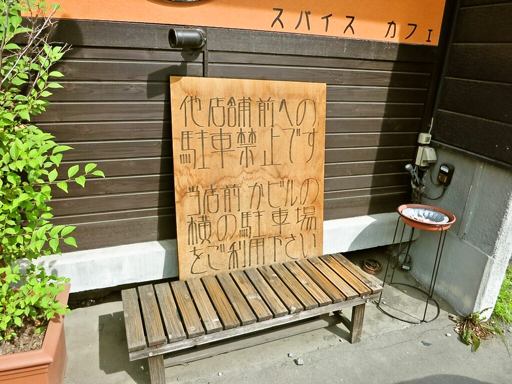 スパイス カフェ
他店舗前への
駐車禁止です
当店前かビルの
横の駐車場
をご利用下さい